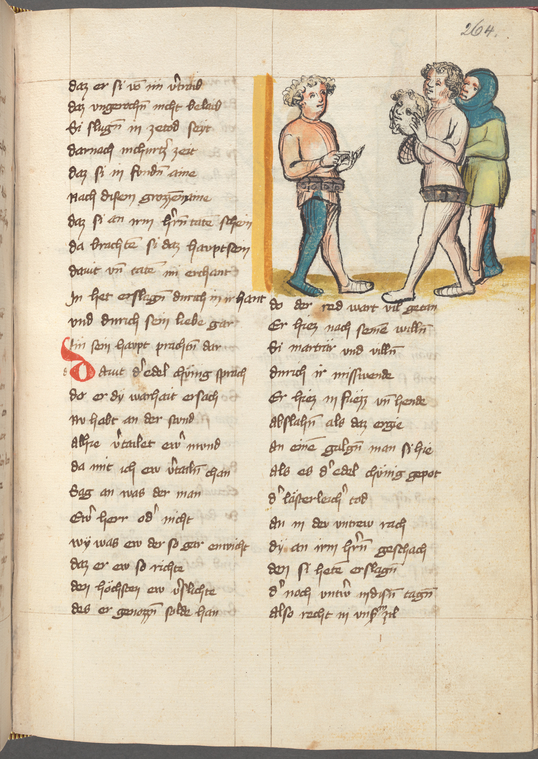 264.
daz er si vō im v̄traib
daz ungerochn̄ nicht belaib
Si slugn̄ in ze tod seyt
darnach in churtz zeit
daz si in fondn̄ aine
Nach disen grozzen maine
daz si an irm hr̄n tate schein
da brachte si daz haupt sein
dauit vn̄ tatē im erchant
Jn het erslagn̄ durch in ir hant
und durch sein liebe gar
im sein haupt prachtn̄ dar
Dauit d' edel chünig sprach
do er dy warhait ersach
Nu habt an der stund
alhie v̄tailet ew̄ mund
da mit ich ew v̄tailn̄ chan
Sag an was der man
Ew̄ herr od' nicht
wy was ew der so gar enwicht
daz er ew so richte
den höchsten ew v̄slichte
des er genozzn̄ solde han
do der red wart vil getan
Er hiez nach seinē willn̄
Si marträr und villn̄
durch ir missewende
Er hiez in fuezz vn̄ hende
abslahn̄ als daz ergie
an einē galgn̄ man si hie
als es d' edel chünig gepot
d' lästerleich' tod
an in der untrew rach
dy an irm hr̄n geschach
den si hetē erslagn̄
d' noch untw̄ in disn̄ tagn̄
also recht in uns' zil